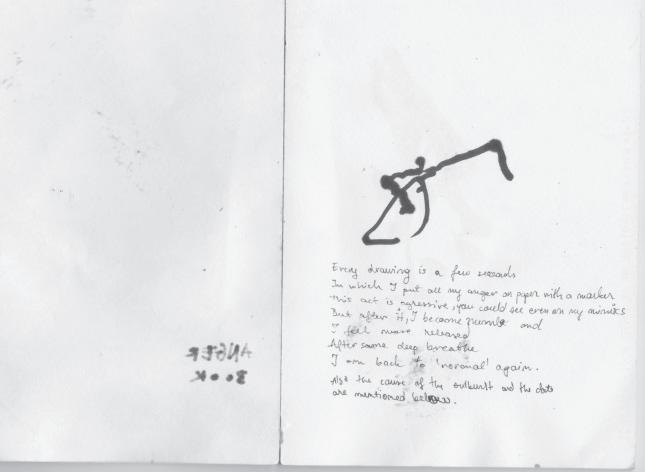 ANGER
BOOK
Every drawing is a few seconds
In which I put all my anger on paper with a marker
this act is agressive, you could see even on my mimiks
But after it, I become and
I feel more released
After some deep breathe
I am back to 'normal' again.
Also the cause of the outburst and the date
are mentioned below.